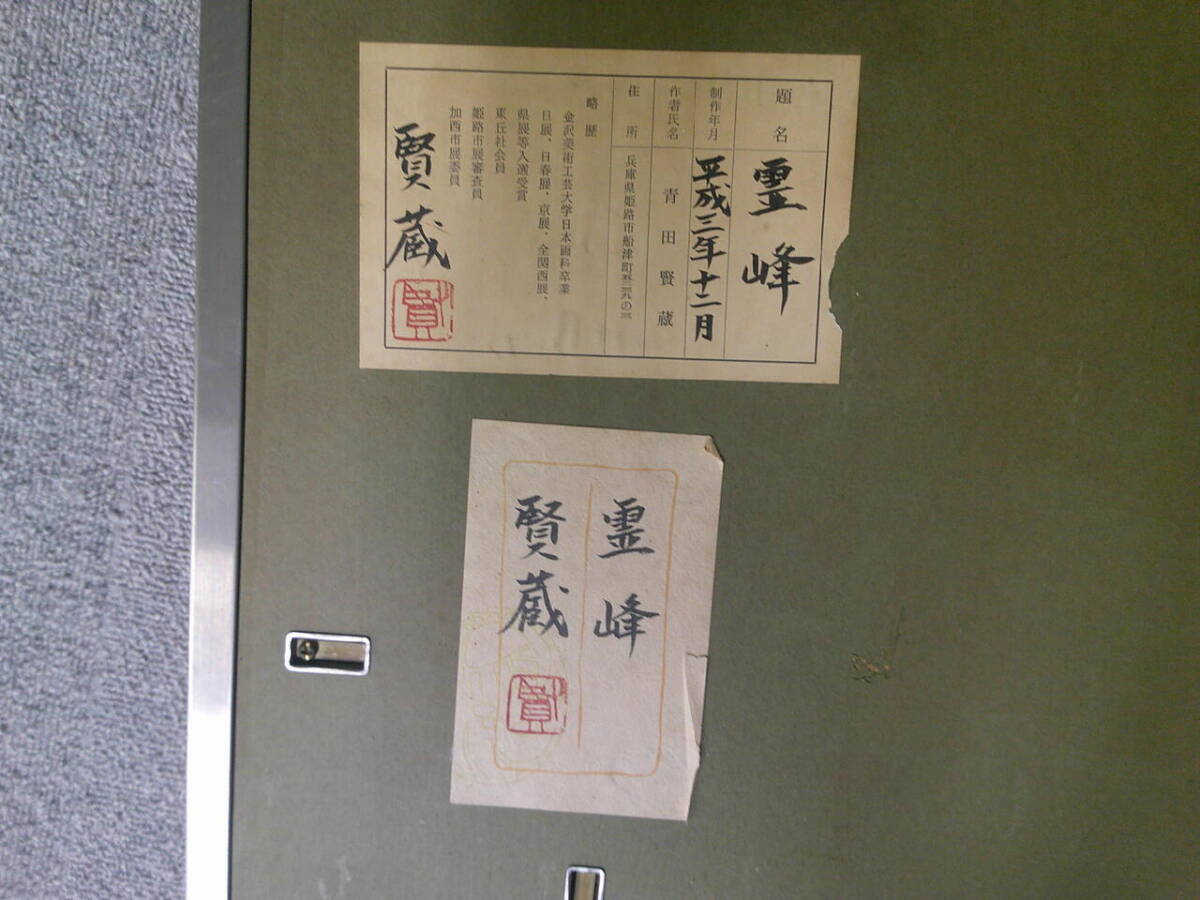 題名 霊峰
制作年月 平成三年十二月
作者氏名 青田賢蔵
住所 兵庫県姫路市船津町五三九の三
略歴
金沢美術工芸大学日本画科卒業
日展、日春展、京展、全関西展、
県展等入選受賞
東丘社会員
姫路市展審査員
加西市展委員
賢蔵
賢
霊峰
賢蔵
賢